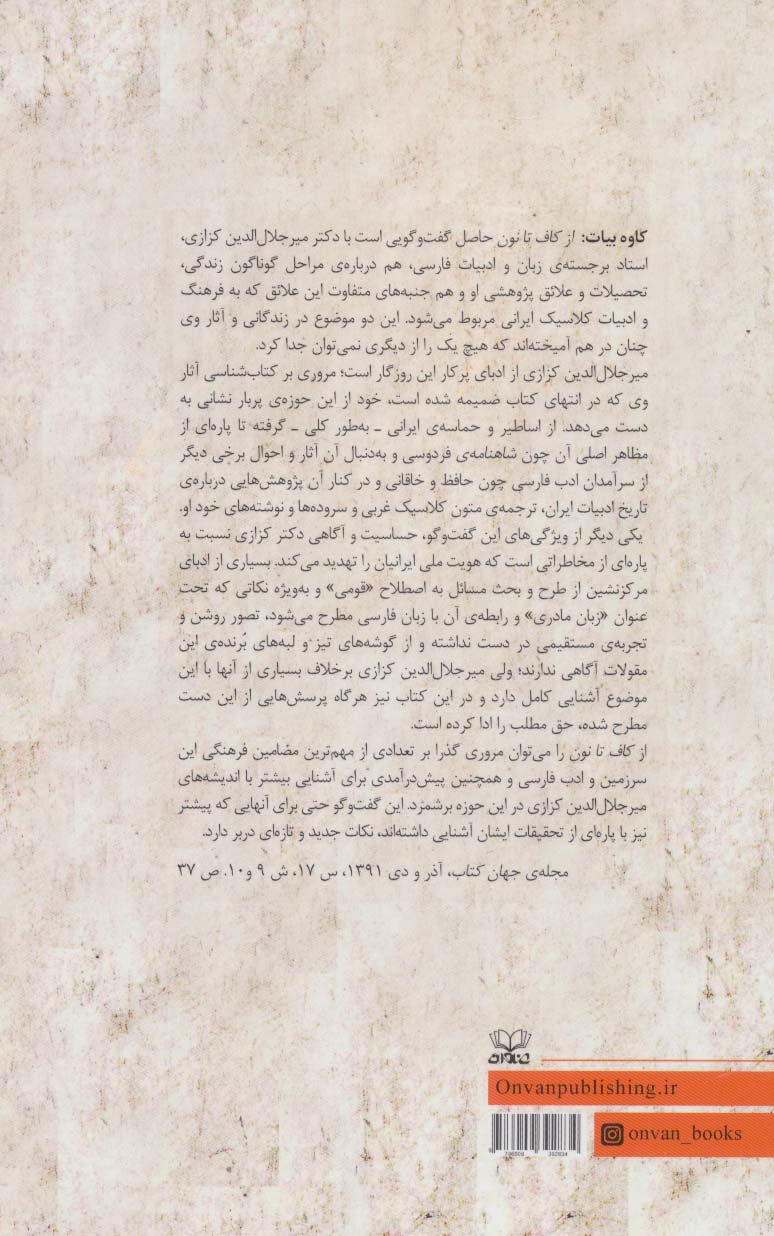 کاوه بیات: از کاف تا نون حاصل گفت‌وگویی است با دکتر میرجلال‌الدین کزازی،
استاد برجسته‌ی زبان و ادبیات فارسی، هم درباره‌ی مراحل گوناگون زندگی،
تحصیلات و علائق پژوهشی او و هم جنبه‌های متفاوت این علائق که به فرهنگ
و ادبیات کلاسیک ایرانی مربوط می‌شود. این دو موضوع در زندگانی و آثار وی
چنان در هم آمیخته‌اند که هیچ یک را از دیگری نمی‌توان جدا کرد.
میرجلال‌الدین کزازی از ادبای پرکار این روزگار است؛ مروری بر کتاب‌شناسی آثار
وی که در انتهای کتاب ضمیمه شده است، خود از این حوزه‌ی پربار نشانی به
دست می‌دهد. از اساطیر و حماسه‌ی ایرانی ـ به‌طور کلی ـ گرفته تا پاره‌ای از
مظاهر اصلی آن چون شاهنامه‌ی فردوسی و به‌دنبال آن آثار و احوال برخی دیگر
از سرآمدان ادب فارسی چون حافظ و خاقانی و در کنار آن پژوهش‌هایی درباره‌ی
تاریخ ادبیات ایران، ترجمه‌ی متون کلاسیک غربی و سروده‌ها و نوشته‌های خود او.
یکی دیگر از ویژگی‌های این گفت‌وگو، حساسیت و آگاهی دکتر کزازی نسبت به
پاره‌ای از مخاطراتی است که هویت ملی ایرانیان را تهدید می‌کند. بسیاری از ادبای
مرکزنشین از طرح و بحث مسائل به اصطلاح «قومی» و به‌ویژه نکاتی که تحت
عنوان «زبان مادری» و رابطه‌ی آن با زبان فارسی مطرح می‌شود، تصور روشن و
تجربه‌ی مستقیمی در دست نداشته و از گوشه‌های تیز و لبه‌های بُرنده‌ی این
مقولات آگاهی ندارند؛ ولی میرجلال‌الدین کزازی برخلاف بسیاری از آنها با این
موضوع آشنایی کامل دارد و در این کتاب نیز هرگاه پرسش‌هایی از این دست
مطرح شده، حق مطلب را ادا کرده است.
از کاف تا نون را می‌توان مروری گذرا بر تعدادی از مهم‌ترین مضامین فرهنگی این
سرزمین و ادب فارسی و همچنین پیش‌درآمدی برای آشنایی بیشتر با اندیشه‌های
میرجلال‌الدین کزازی در این حوزه برشمزد. این گفت‌وگو حتی برای آنهایی که پیشتر
نیز با پاره‌ای از تحقیقات ایشان آشنایی داشته‌اند، نکات جدید و تازه‌ای دربر دارد.
مجله‌ی جهان کتاب، آذر و دی ۱۳۹۱، س ۱۷، ش ۹ و۱۰. ص ۳۷
عنوان
Onvanpublishing.ir
onvan_books